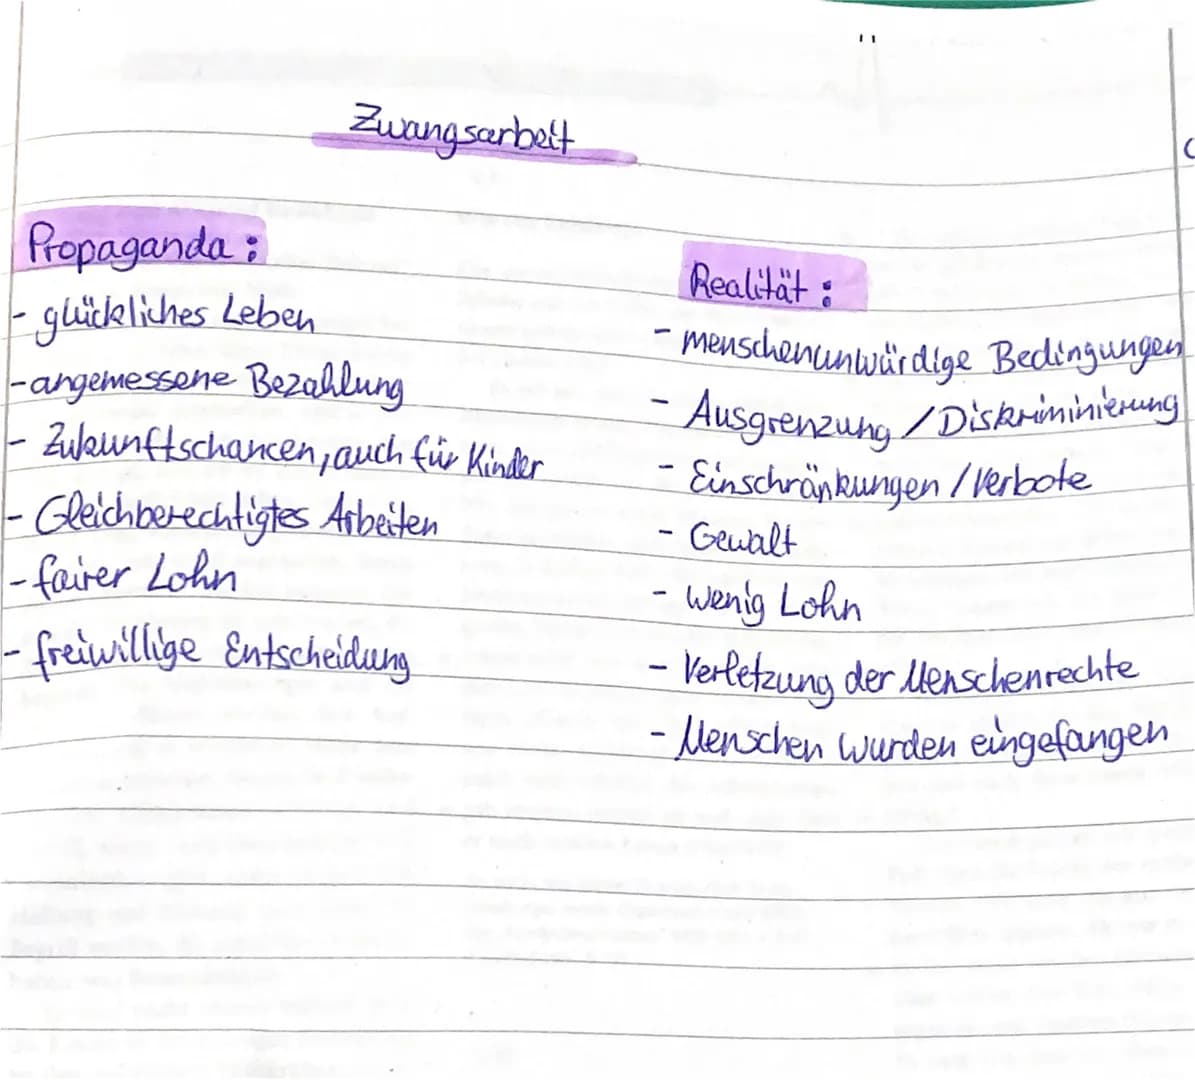 Zwangsarbeit
Propaganda:
- glückliches Leben
- angemessene Bezahlung
- Zukunftschancen, auch für Kinder
- Gleichberechtigtes Arbeiten
- fairer Lohn
- freiwillige Entscheidung
Realität:
- menschenunwürdige Bedingungen
- Ausgrenzung / Diskriminierung
- Einschränkungen / Verbote
- Gewalt
- wenig Lohn
- Verletzung der Menschenrechte
- Menschen wurden eingefangen